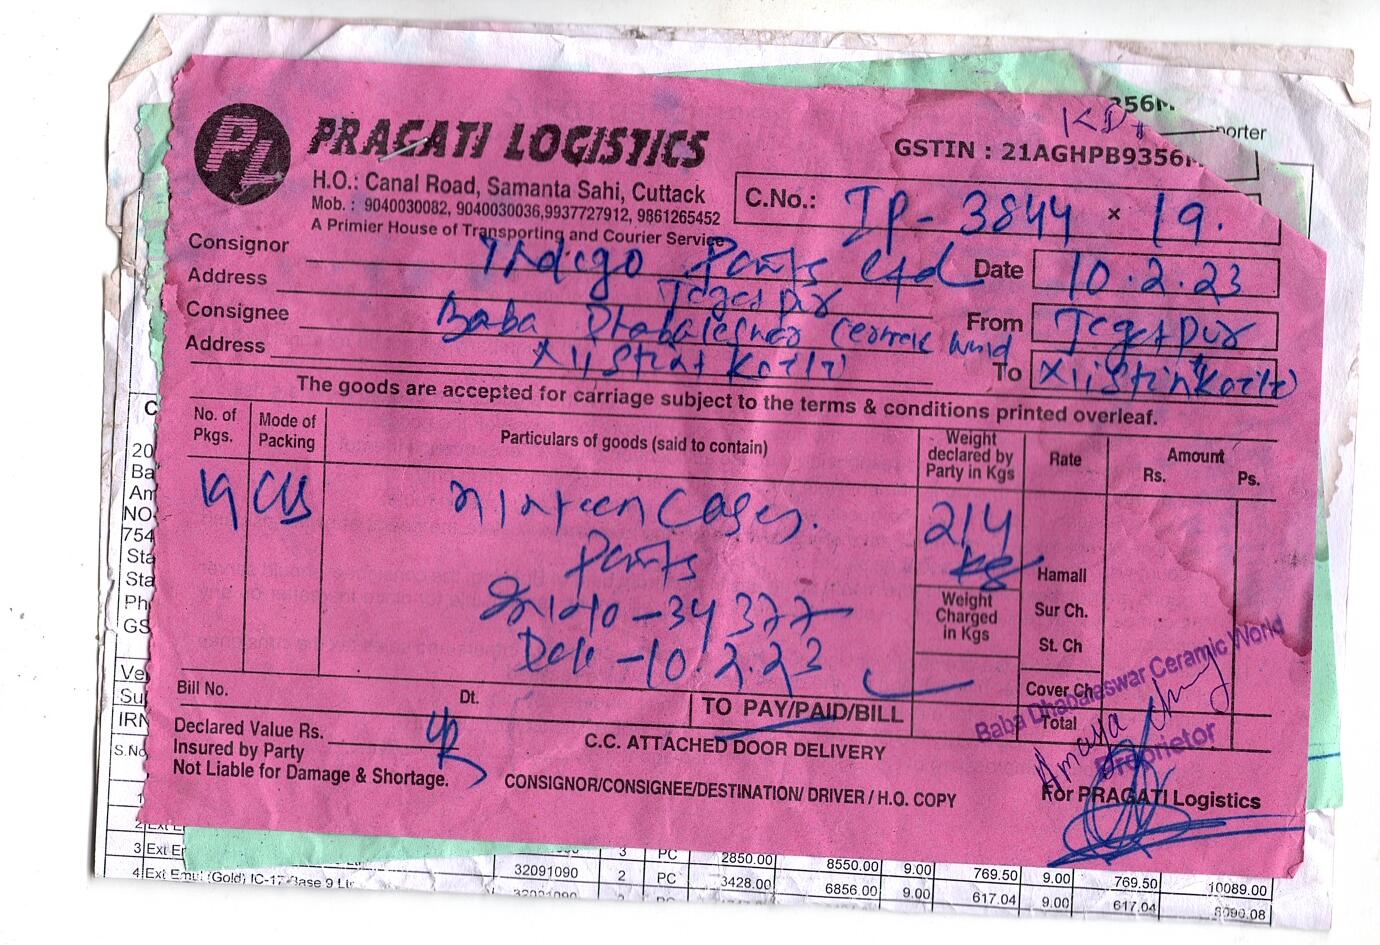 356M
porter
KD
PL
PRAGATI LOGISTICS
GSTIN : 21AGHPB9356M
H.O.: Canal Road, Samanta Sahi, Cuttack
Mob. : 9040030082, 9040030036,9937727912, 9861265452
A Primier House of Transporting and Courier Service
C.No.: IP- 3844 × 19.
Consignor Indigo Paints Ltd
Date 10.2.23
Address
Consignee Baba
From
Address
To
The goods are accepted for carriage subject to the terms & conditions printed overleaf.
No. of Pkgs. Mode of Packing Particulars of goods (said to contain) Weight declared by Party in Kgs Rate Amount Rs. Ps.
19 C/S Ninteen Cases. 214 kg
Paints
34377
Date -10.2.23
Weight Charged in Kgs
Hamall
Sur Ch.
St. Ch
Cover Ch.
Total
Bill No. Dt. TO PAY/PAID/BILL
Declared Value Rs.
Insured by Party
Not Liable for Damage & Shortage.
C.C. ATTACHED DOOR DELIVERY
CONSIGNOR/CONSIGNEE/DESTINATION/ DRIVER / H.O. COPY
Baba Dhabaleswar Ceramic World
Proprietor
For PRAGATI Logistics
C
20
Ba
Am
NO
754
Sta
Sta
Ph
GS
Ve
Su
IRN
S.No
3 Ext Er 3 PC 2850.00 8550.00 9.00 769.50 9.00 769.50 10089.00
4 Ext Emul (Gold) IC-17-Base 9 Ltr 32091090 2 PC 3428.00 6856.00 9.00 617.04 9.00 617.04 8090.08